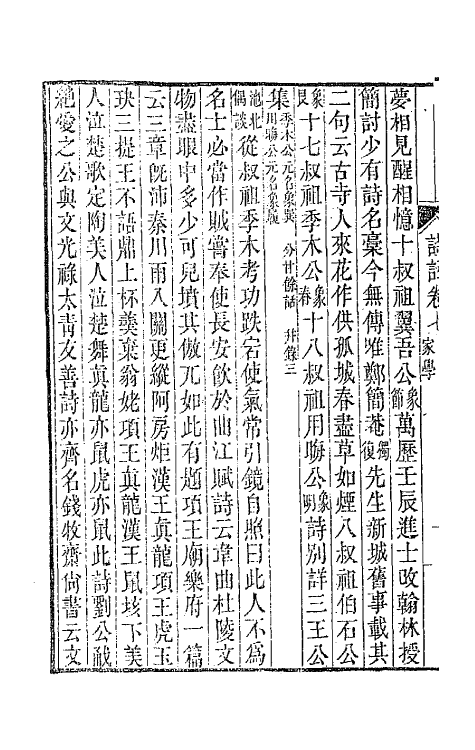 詩話卷七 家學
夢相見醒相憶十叔祖翼吾公象節萬歷壬辰進士改翰林授
簡討少有詩名稾今無傳唯鄭簡菴獨復先生新城舊事載其
二句云古寺人來花作供孤城春盡草如煙八叔祖伯石公
象艮十七叔祖季木公象春十八叔祖用晦公象明詩別詳三王公
集季木公元名象巽用晦公元名象履 分甘餘話 幷錄三
池北偶談從叔祖季木考功跌宕使氣常引鏡自照曰此人不爲
名士必當作賊嘗奉使長安飲於曲江賦詩云韋曲杜陵文
物盡眼中多少可兒墳其傲兀如此有題項王廟樂府一篇
云三章旣沛秦川雨入關更縱阿房炬漢王眞龍項王虎玉
玦三提王不語鼎上杯羹棄翁姥項王眞龍漢王鼠垓下美
人泣楚歌定陶美人泣楚舞眞龍亦鼠虎亦鼠此詩劉公㦷
絕愛之公與文光祿太青友善詩亦齊名錢牧齋尙書云文